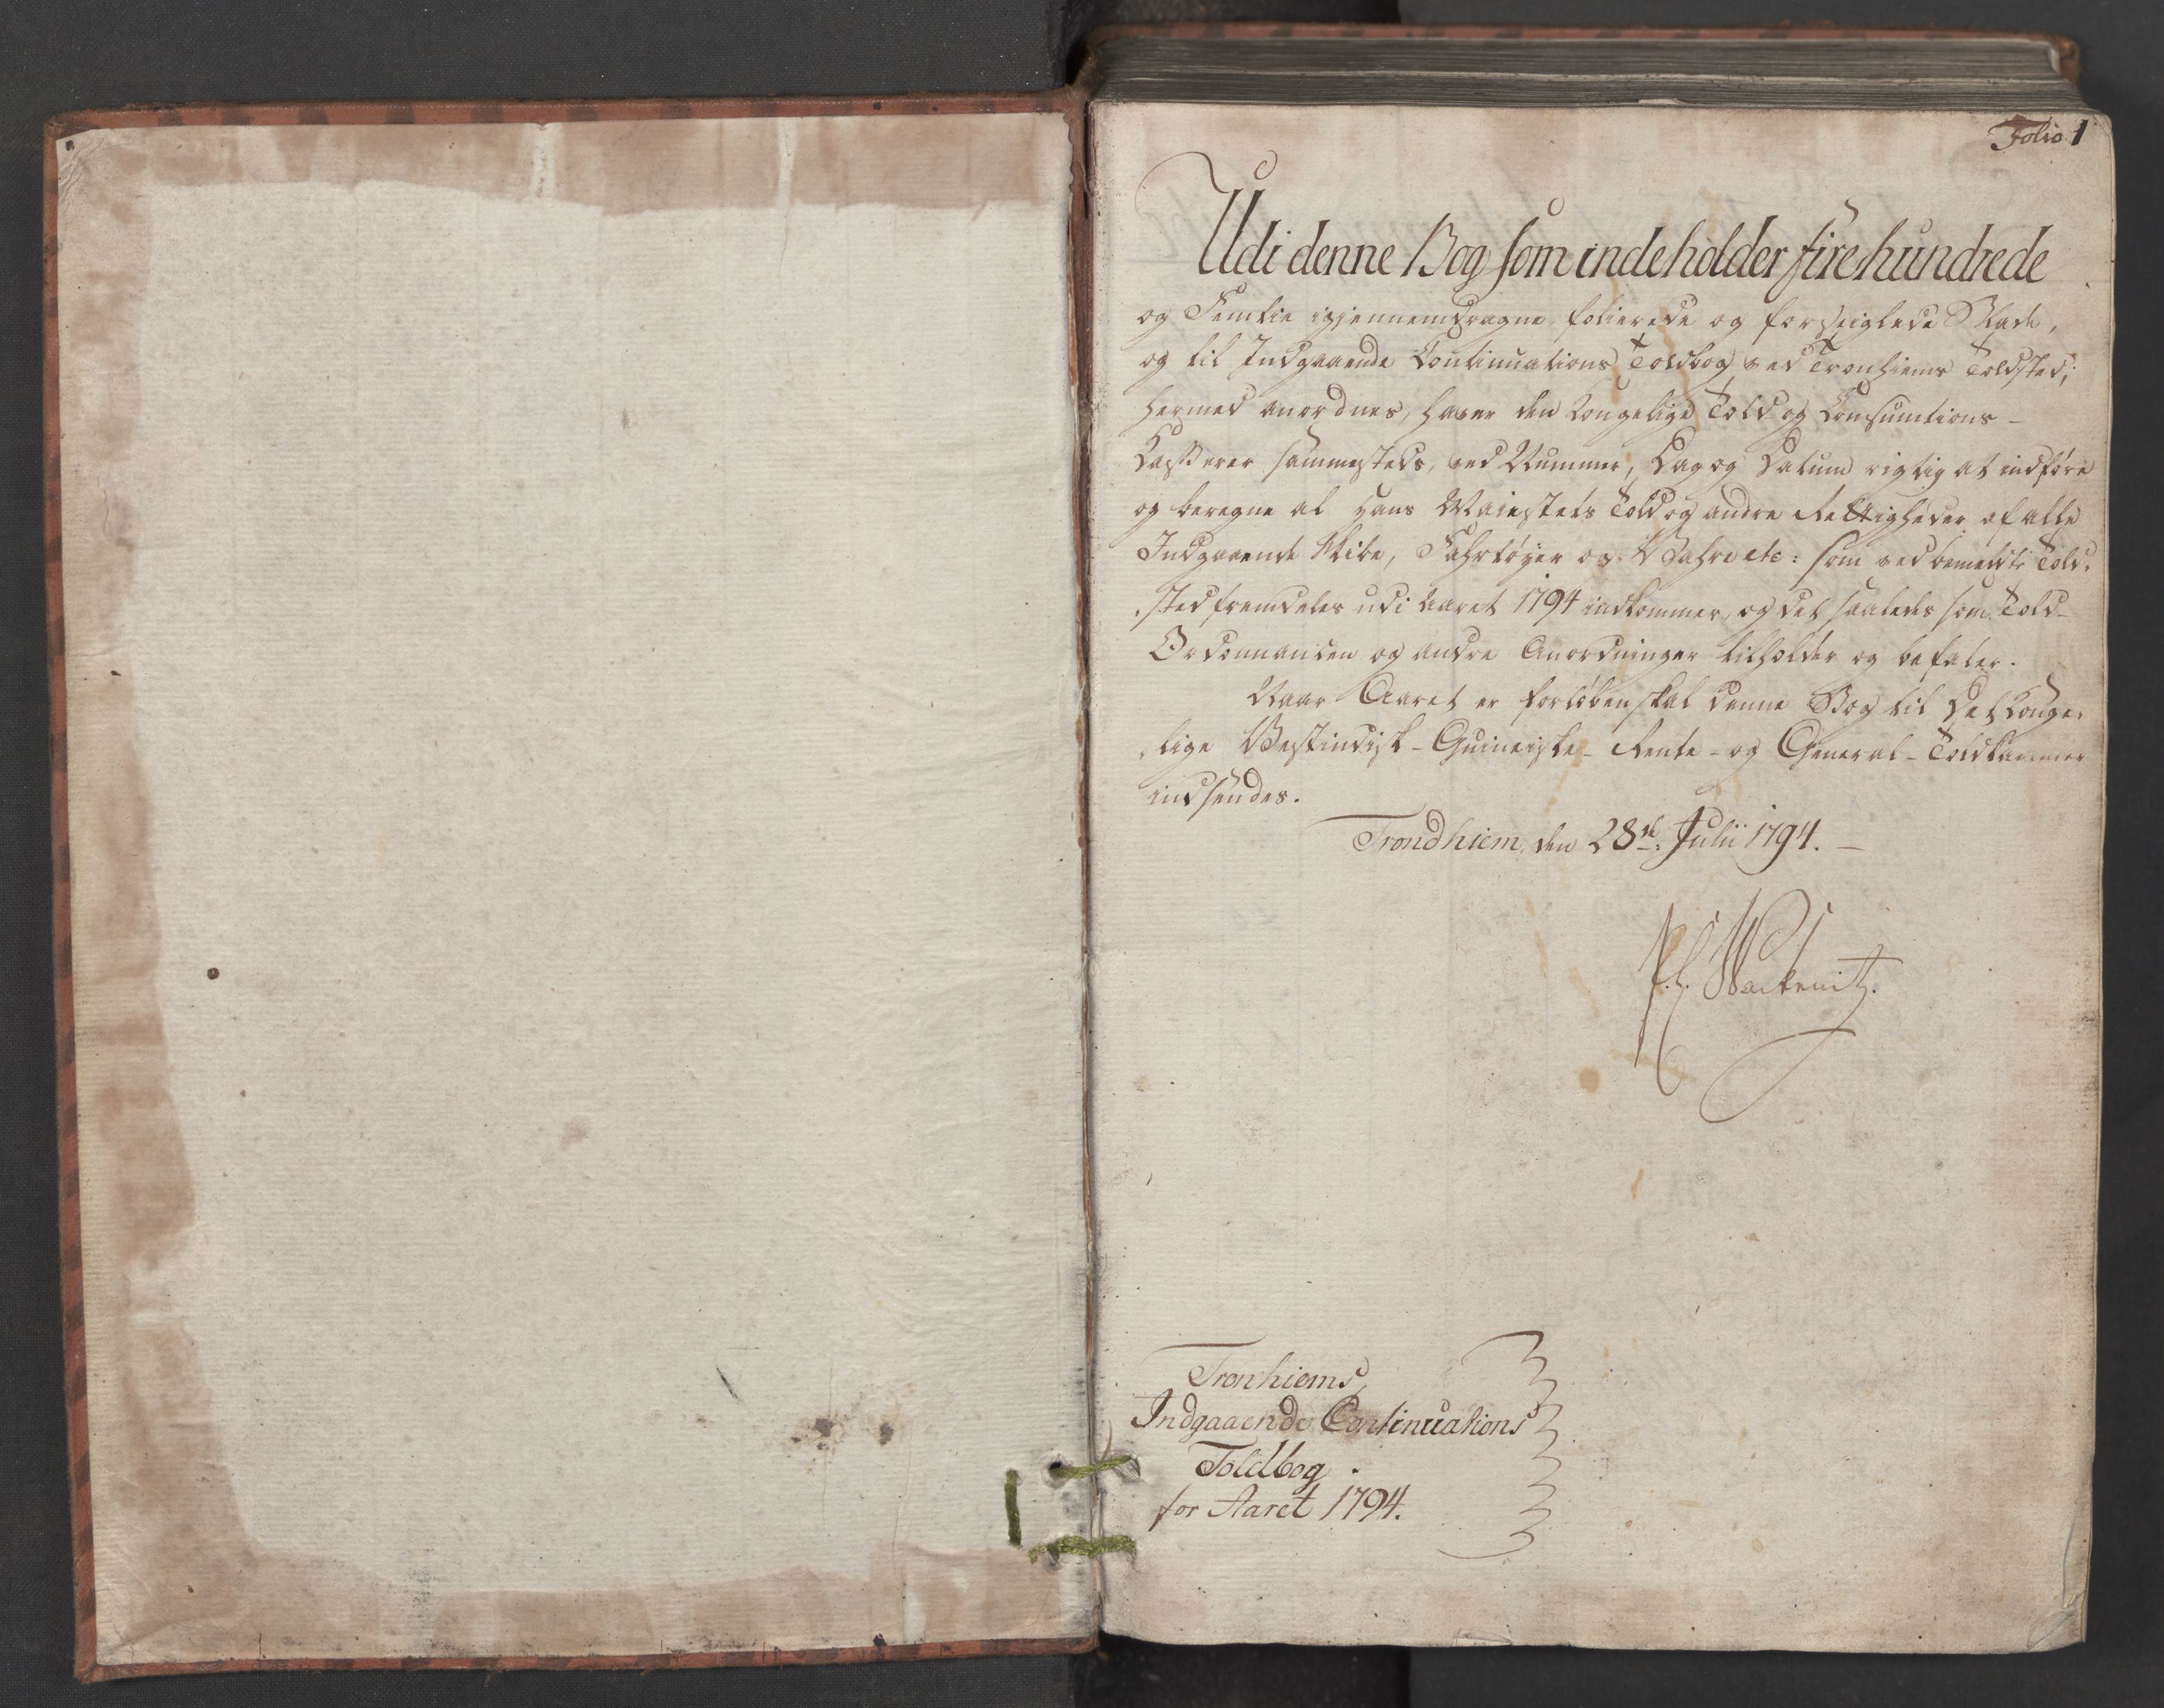 Folio 1
Udi denne Bog som indeholder fire hundrede
og Femtie igjennemdragne, folierede og forseiglede Blade,
og til Indgaaende Continuations Toldbog ved Tronhiems Toldsted,
hermed anordnes, haver den Kongelige Told og Consumtions-
Casserer sammesteds, ved Nummer, Dag og Datum rigtig at indføre
og beregne al Hans Majestets Told og andre Rettigheder af alle
Indgaaende Skibe, Fahrtøyer og Vahre etc: som ved bemeldte Told-
sted fremdeles udi Aaret 1794 indkommer, og det saaledes som Told-
Ordonnancen og andre Anordninger tilholder og befaler.
Naar Aaret er forløben skal denne Bog til Det Konge-
lige Vestindisk-Guineiske-Rente-og General-Toldkammer
indsendes.
Trondhiem, den 28de Julii 1794.
Wackenitz.
Tronhiems
Indgaaende Continuations
Toldbog
for Aaret 1794.